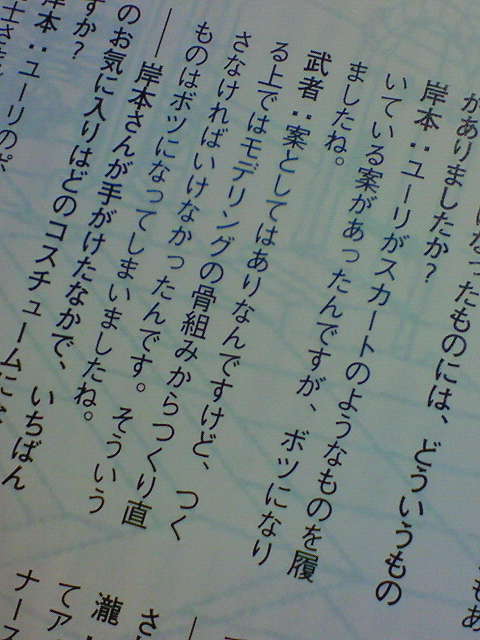 なったものには、どういうもの
がありましたか？
岸本：ユーリがスカートのようなものを履
いている案があったんですが、ボツになり
ましたね。
武者：案としてはありなんですけど、つく
る上ではモデリングの骨組みからつくり直
さなければいけなかったんです。そういう
ものはボツになってしまいましたね。
――岸本さんが手がけたなかで、いちばん
のお気に入りはどのコスチュームに
すか？
岸本：ユーリのポ
士さま
さ
瀧
てア
ナース